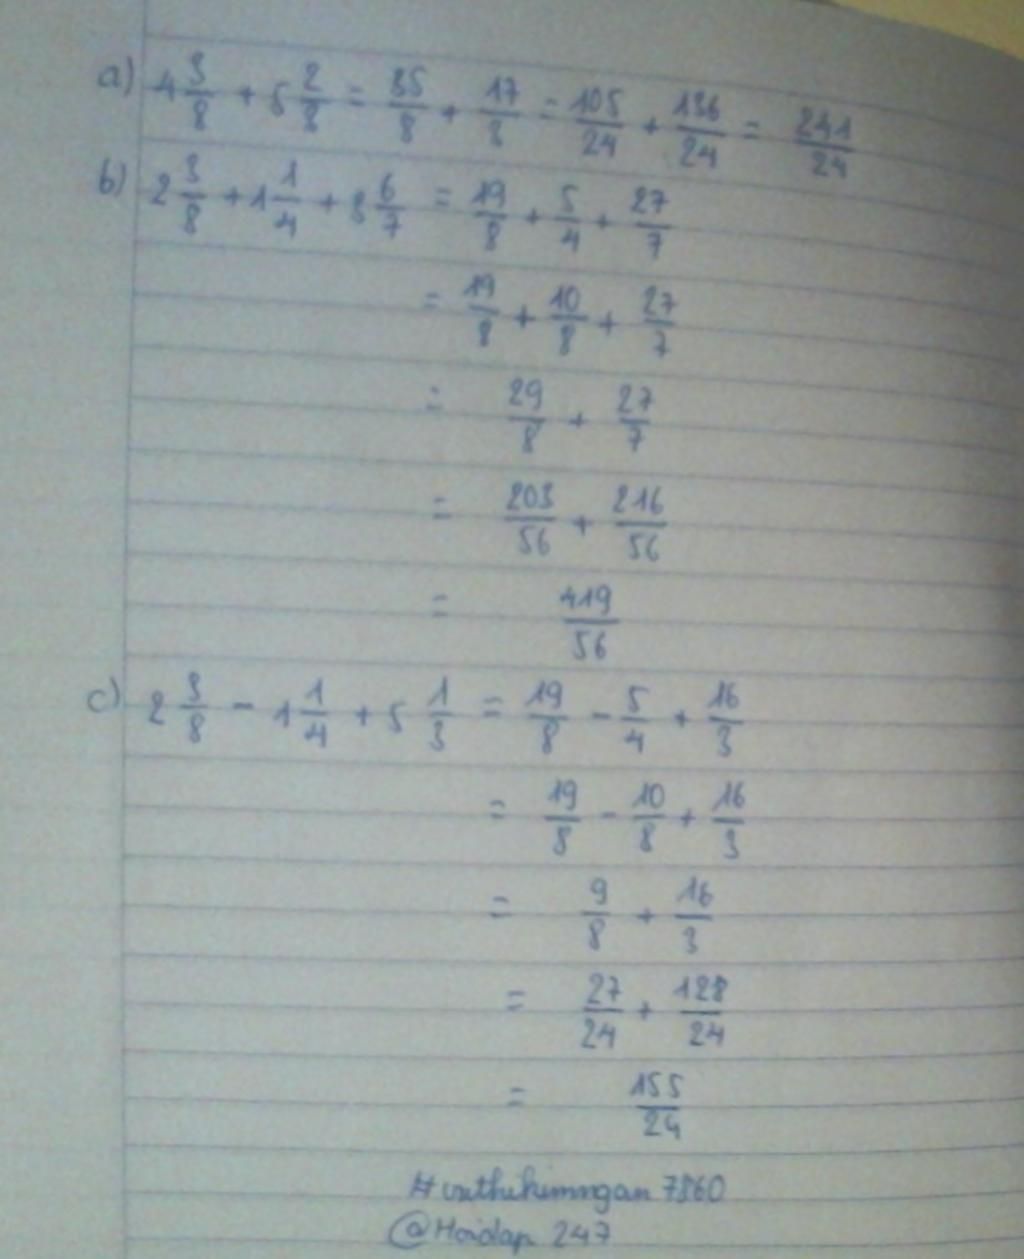 a) 4 3/8 + 5 2/3 = 35/8 + 17/3 = 105/24 + 136/24 = 241/24
b) 2 3/8 + 1 1/4 + 3 6/7 = 19/8 + 5/4 + 27/7
= 19/8 + 10/8 + 27/7
= 29/8 + 27/7
= 203/56 + 216/56
= 419/56
c) 2 3/8 - 1 1/4 + 5 1/3 = 19/8 - 5/4 + 16/3
= 19/8 - 10/8 + 16/3
= 9/8 + 16/3
= 27/24 + 128/24
= 155/24
#vuthikimngan 7860
@Hoidap 247